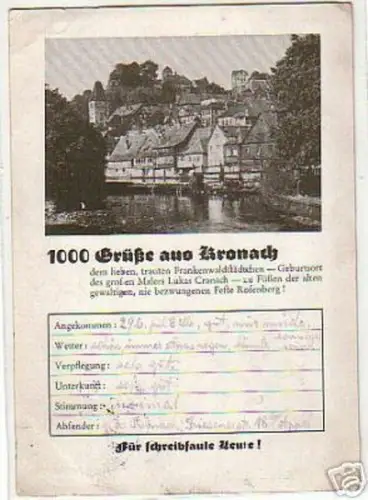 1000 Grüße aus Kronach
dem lieben, trauten Frankenwaldstädtchen — Geburtsort
des großen Malers Lukas Cranach — zu Füßen der alten
gewaltigen, nie bezwungenen Feste Rosenberg!
Angekommen: 29.6. gut,
Wetter: immer etwas regen,
Verpflegung: sehr gut
Unterkunft: sehr gut
Stimmung: normal
Absender: Kronach,
Für schreibfaule Leute!